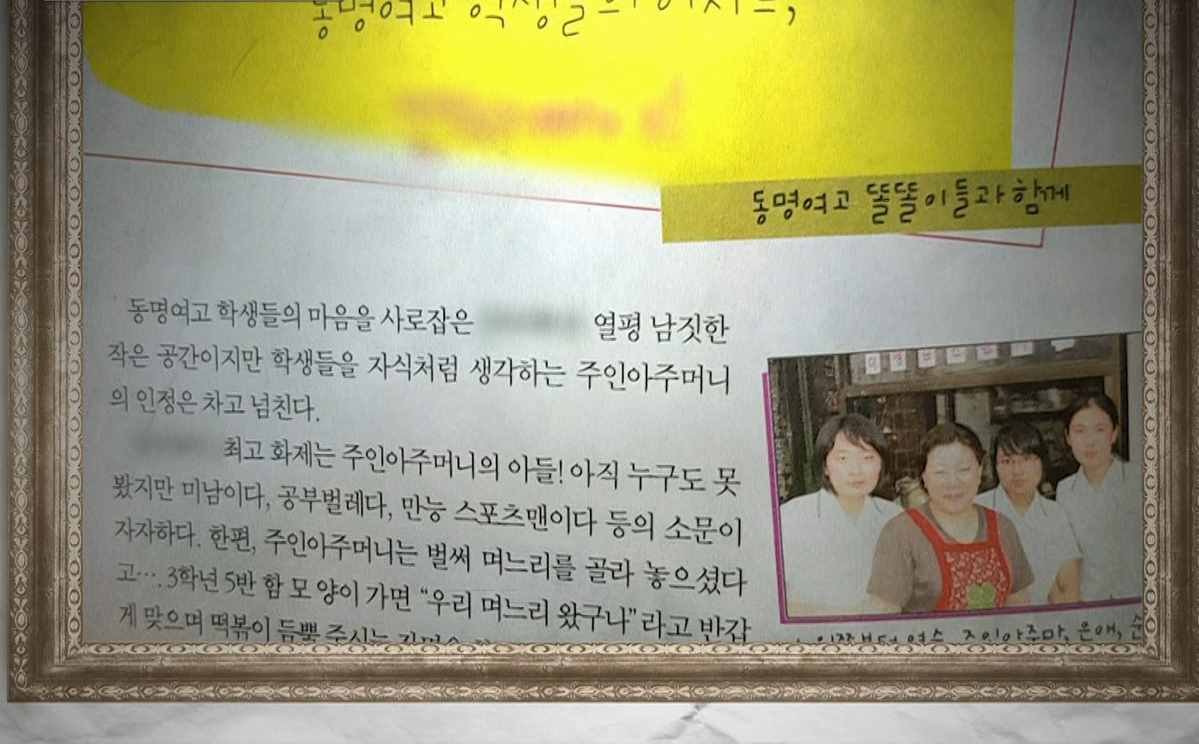 동명여고 학생들의
동명여고 똘똘이들과 함께
동명여고 학생들의 마음을 사로잡은 열평 남짓한
작은 공간이지만 학생들을 자식처럼 생각하는 주인아주머니
의 인정은 차고 넘친다.
최고 화제는 주인아주머니의 아들! 아직 누구도 못
봤지만 미남이다, 공부벌레다, 만능 스포츠맨이다 등의 소문이
자자하다. 한편, 주인아주머니는 벌써 며느리를 골라 놓으셨다
고…. 3학년 5반 함 모 양이 가면 “우리 며느리 왔구나”라고 반갑
게 맞으며 떡볶이 듬뿍 주시는
주인아주마, 은애,